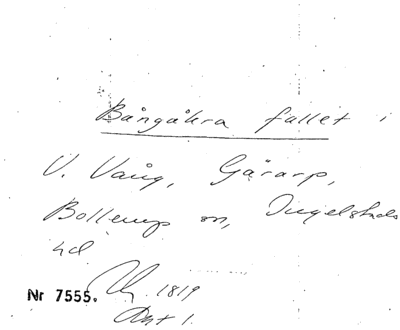 Bångåkra fallet i
V. Vång, Gårarp,
Bollerup sn, Ingelstads
hd
1819
Nr 7555.
Akt 1.